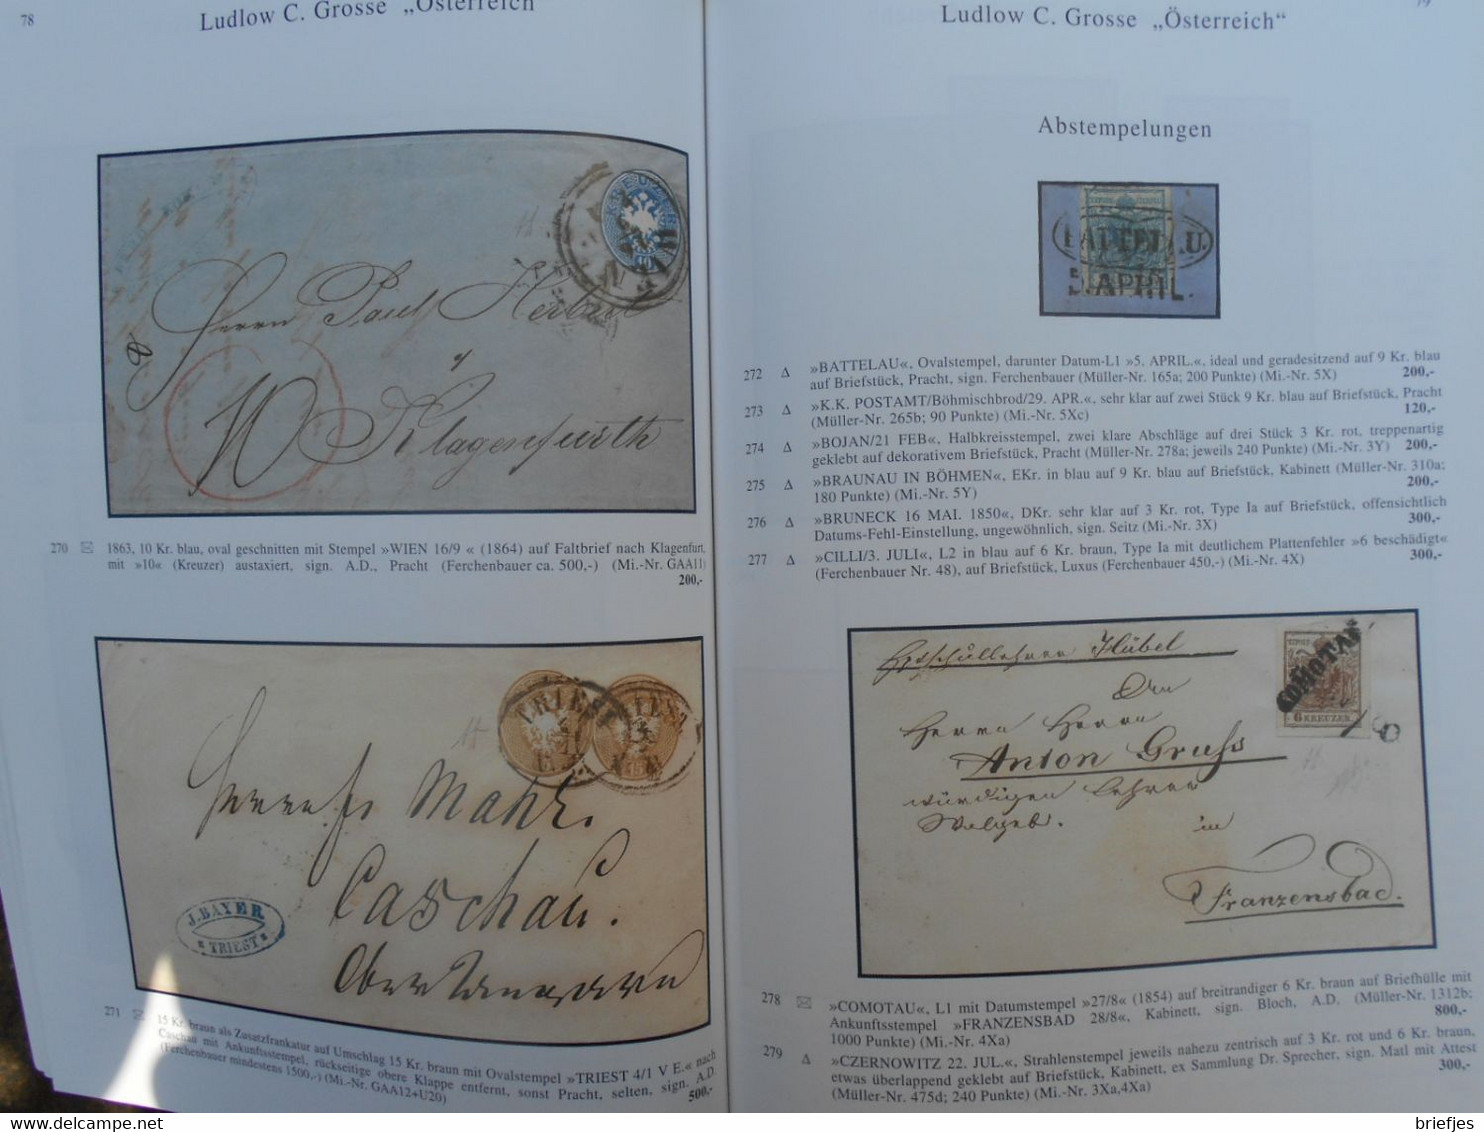 78
Ludlow C. Grosse „Österreich“
WIEN
Herrn Paul Herbul
à
Klagenfurth
10
270 1863, 10 Kr. blau, oval geschnitten mit Stempel »WIEN 16/9 « (1864) auf Faltbrief nach Klagenfurt,
mit »10« (Kreuzer) austaxiert, sign. A.D., Pracht (Ferchenbauer ca. 500,-) (Mi.-Nr. GAA11)
200,-
TRIEST
TRIEST
Caschau.
J. BAYER
TRIEST
271 15 Kr. braun als Zusatzfrankatur auf Umschlag 15 Kr. braun mit Ovalstempel »TRIEST 4/1 V E.« nach
Caschau mit Ankunftsstempel, rückseitige obere Klappe entfernt, sonst Pracht, selten, sign. A.D.
(Ferchenbauer mindestens 1500,-) (Mi.-Nr. GAA12+U20) 500,-
79
Ludlow C. Grosse „Österreich“
Abstempelungen
BATTELAU.
5. APRIL.
272 Δ »BATTELAU«, Ovalstempel, darunter Datum-L1 »5. APRIL.«, ideal und geradesitzend auf 9 Kr. blau
auf Briefstück, Pracht, sign. Ferchenbauer (Müller-Nr. 165a; 200 Punkte) (Mi.-Nr. 5X) 200,-
273 Δ »K.K. POSTAMT/Böhmischbrod/29. APR.«, sehr klar auf zwei Stück 9 Kr. blau auf Briefstück, Pracht
(Müller-Nr. 265b; 90 Punkte) (Mi.-Nr. 5Xc) 120,-
274 Δ »BOJAN/21 FEB«, Halbkreisstempel, zwei klare Abschläge auf drei Stück 3 Kr. rot, treppenartig
geklebt auf dekorativem Briefstück, Pracht (Müller-Nr. 278a; jeweils 240 Punkte) (Mi.-Nr. 3Y) 200,-
275 Δ »BRAUNAU IN BÖHMEN«, EKr. in blau auf 9 Kr. blau auf Briefstück, Kabinett (Müller-Nr. 310a;
180 Punkte) (Mi.-Nr. 5Y) 200,-
276 Δ »BRUNECK 16 MAI. 1850«, DKr. sehr klar auf 3 Kr. rot, Type Ia auf Briefstück, offensichtlich
Datums-Fehl-Einstellung, ungewöhnlich, sign. Seitz (Mi.-Nr. 3X) 300,-
277 Δ »CILLI/3. JULI«, L2 in blau auf 6 Kr. braun, Type Ia mit deutlichem Plattenfehler »6 beschädigt«
(Ferchenbauer Nr. 48), auf Briefstück, Luxus (Ferchenbauer 450,-) (Mi.-Nr. 4X) 300,-
COMOTAU
6 KREUZER
Anton Gruß
Franzensbad.
278 »COMOTAU«, L1 mit Datumstempel »27/8« (1854) auf breitrandiger 6 Kr. braun auf Briefhülle mit
Ankunftsstempel »FRANZENSBAD 28/8«, Kabinett, sign. Bloch, A.D. (Müller-Nr. 1312b;
1000 Punkte) (Mi.-Nr. 4Xa) 800,-
279 Δ »CZERNOWITZ 22. JUL.«, Strahlenstempel jeweils nahezu zentrisch auf 3 Kr. rot und 6 Kr. braun,
etwas überlappend geklebt auf Briefstück, Kabinett, ex Sammlung Dr. Sprecher, sign. Matl mit Attest
(Müller-Nr. 475d; 240 Punkte) (Mi.-Nr. 3Xa,4Xa) 300,-
delcampe.net
briefjes